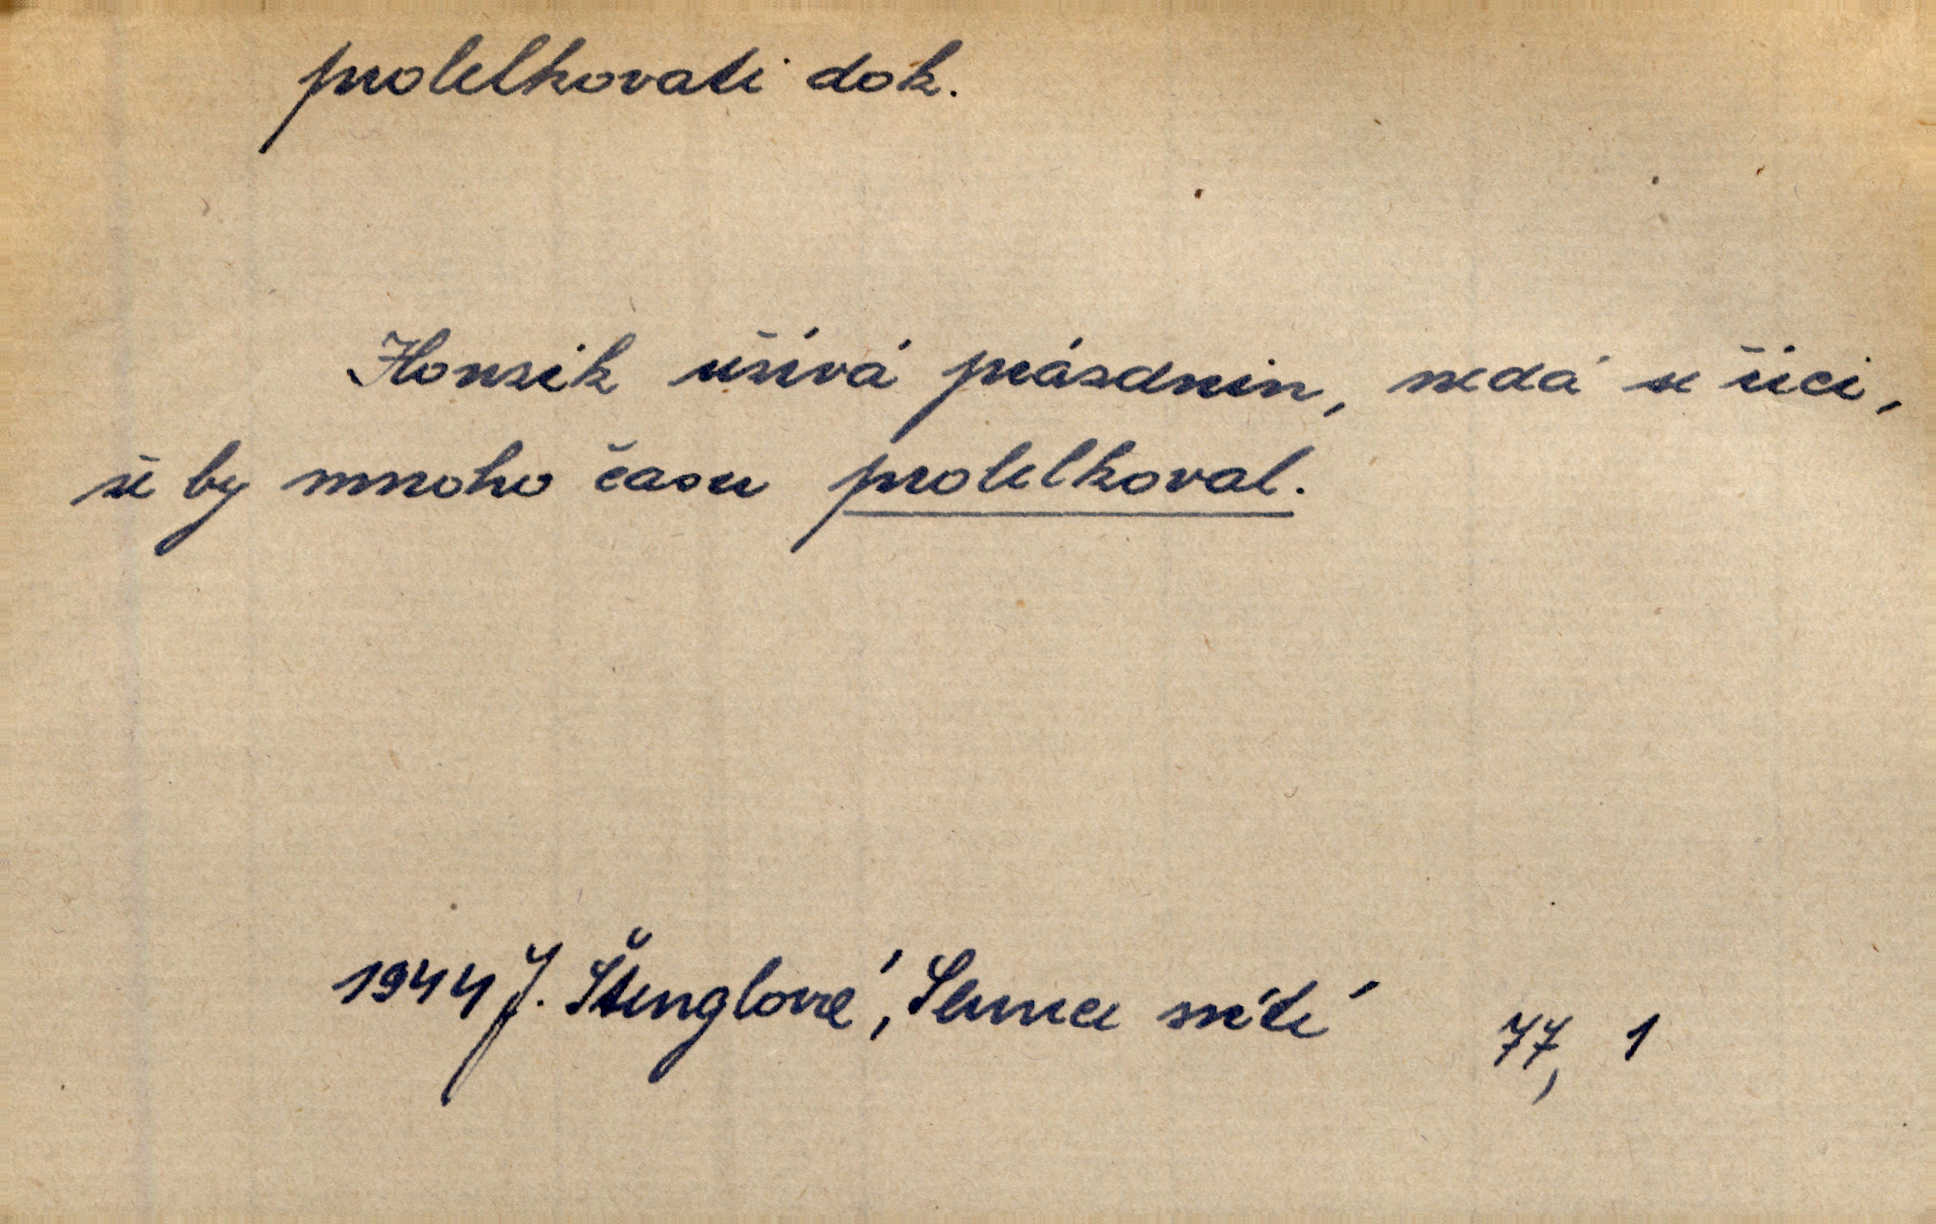 prolelkovati dok.
Honzík užívá prázdnin, nedá se říci,
že by mnoho času prolelkoval.
1944 J. Štenglové, Slunce svítí 77, 1